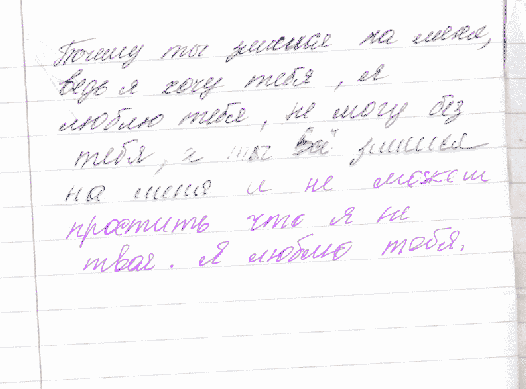 Почему ты злишся на меня,
ведь я хочу тебя, я
люблю тебя, не могу без
тебя, а ты всё злишся
на меня и не можеш
простить что я не
твоя. Я люблю тобя.